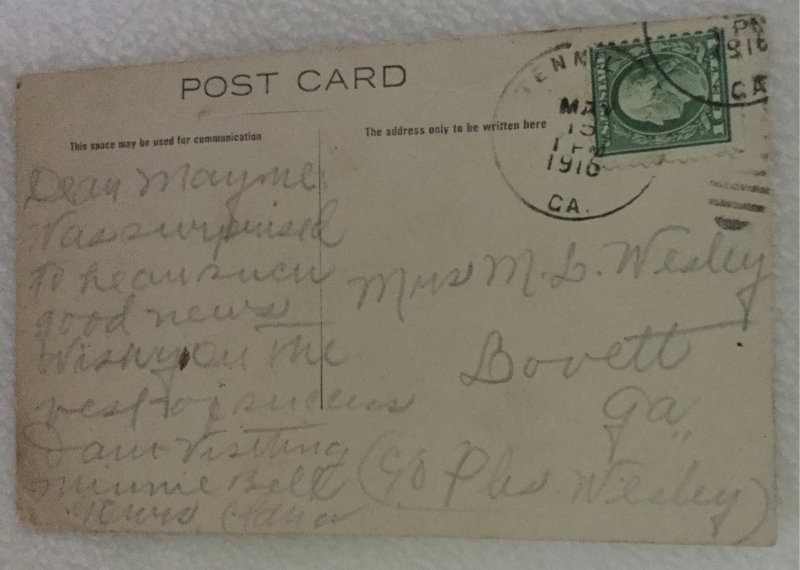 POST CARD
This space may be used for communication
The address only to be written here
Dear Mayme
Was surprised
to hear such
good news
Wish you the
best of success
I am visiting
Minnie Bell
Yours
Mrs M. L. Wesley
Bovett
Ga
(C/o Wesley)
MAY
13
1916
GA.
1916
GA